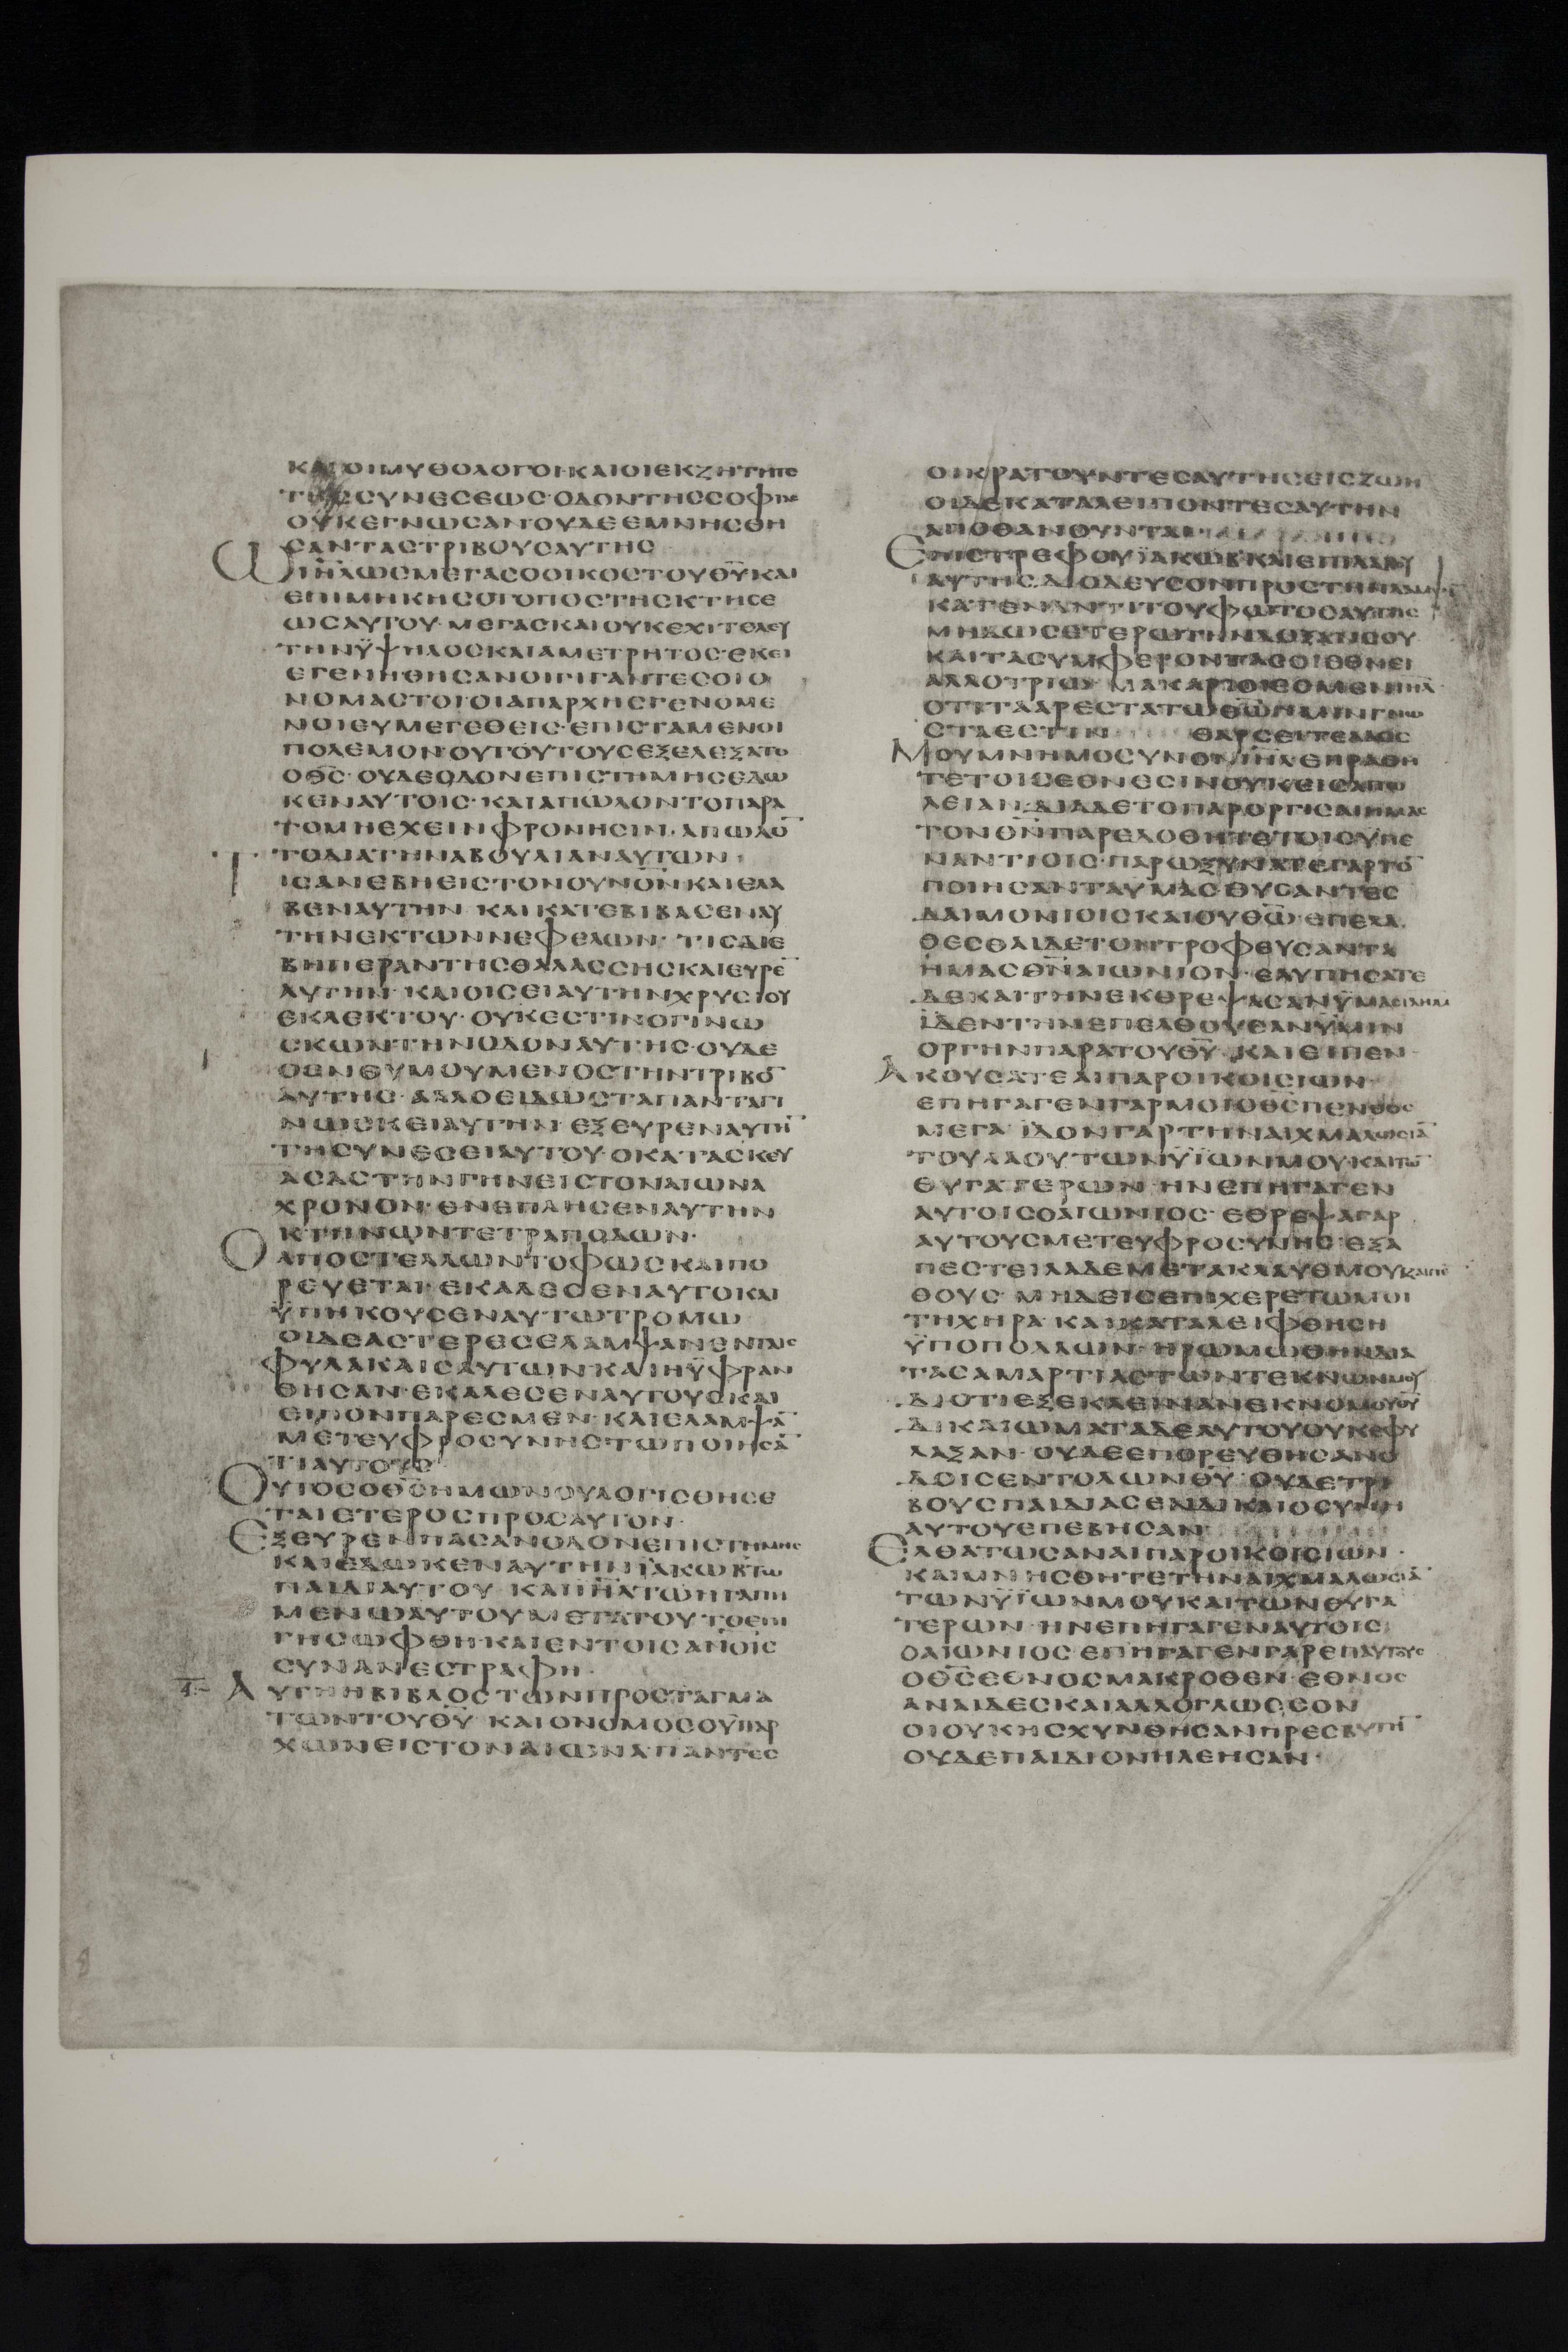 ΚΑΙΟΙΜΥΘΟΛΟΓΟΙ·ΚΑΙΟΙΕΚΖΗΤΗΤΕ
ΤΗΣΣΥΝΕΣΕΩΣ·ΟΔΟΝΤΗΣΣΟΦΙΑΣ
ΟΥΚΕΓΝΩΣΑΝΟΥΔΕΕΜΝΗΣΘΗ
ΣΑΝΤΑΣΤΡΙΒΟΥΣΑΥΤΗΣ
ΩΙΗ̅Λ̅ΩΣΜΕΓΑΣΟΟΙΚΟΣΤΟΥΘ̅Υ̅ΚΑΙ
ΕΠΙΜΗΚΗΣΟΤΟΠΟΣΤΗΣΚΤΗΣΕ
ΩΣΑΥΤΟΥ·ΜΕΓΑΣΚΑΙΟΥΚΕΧΙΤΕΛΕΥ
ΤΗΝΫΨΗΛΟΣΚΑΙΑΜΕΤΡΗΤΟΣ·ΕΚΕΙ
ΕΓΕΝΗΘΗΣΑΝΟΙΓΙΓΑΝΤΕΣΟΙΟ
ΝΟΜΑΣΤΟΙΟΙΑΠΑΡΧΗΣΓΕΝΟΜΕ
ΝΟΙΕΥΜΕΓΕΘΕΙΣ·ΕΠΙΣΤΑΜΕΝΟΙ
ΠΟΛΕΜΟΝ·ΟΥΤΟΥΤΟΥΣΕΞΕΛΕΞΑΤΟ
ΟΘ̅Σ̅·ΟΥΔΕΟΔΟΝΕΠΙΣΤΗΜΗΣΕΔΩ
ΚΕΝΑΥΤΟΙΣ·ΚΑΙΑΠΩΛΟΝΤΟΠΑΡΑ
ΤΟΜΗΕΧΕΙΝΦΡΟΝΗΣΙΝ·ΑΠΩΛΟ̅
ΤΟΔΙΑΤΗΝΑΒΟΥΛΙΑΝΑΥΤΩΝ·
ΤΙΣΑΝΕΒΗΕΙΣΤΟΝΟΥΝΟ̅Ν̅ΚΑΙΕΛΑ
ΒΕΝΑΥΤΗΝ ΚΑΙΚΑΤΕΒΙΒΑΣΕΝΑΥ
ΤΗΝΕΚΤΩΝΝΕΦΕΛΩΝ· ΤΙΣΔΙΕ
ΒΗΠΕΡΑΝΤΗΣΘΑΛΑΣΣΗΣΚΑΙΕΥΡΕ̅
ΑΥΤΗΝ·ΚΑΙΟΙΣΕΙΑΥΤΗΝΧΡΥΣΙΟΥ
ΕΚΛΕΚΤΟΥ·ΟΥΚΕΣΤΙΝΟΓΙΝΩ
ΣΚΩΝΤΗΝΟΔΟΝΑΥΤΗΣ·ΟΥΔΕ
ΟΕΝΘΥΜΟΥΜΕΝΟΣΤΗΝΤΡΙΒΟ̅
ΑΥΤΗΣ·ΑΛΛΟΕΙΔΩΣΤΑΠΑΝΤΑΓΙ
ΝΩΣΚΕΙΑΥΤΗΝ·ΕΞΕΥΡΕΝΑΥΤΗ̅
ΤΗΣΥΝΕΣΕΙΑΥΤΟΥ·ΟΚΑΤΑΣΚΕΥ
ΑΣΑΣΤΗΝΓΗΝΕΙΣΤΟΝΑΙΩΝΑ
ΧΡΟΝΟΝ·ΕΝΕΠΛΗΣΕΝΑΥΤΗΝ
ΚΤΗΝΩΝΤΕΤΡΑΠΟΔΩΝ·
ΟΑΠΟΣΤΕΛΛΩΝΤΟΦΩΣΚΑΙΠΟ
ΡΕΥΕΤΑΙ·ΕΚΑΛΕΣΕΝΑΥΤΟΚΑΙ
ΫΠΗΚΟΥΣΕΝΑΥΤΩΤΡΟΜΩ
ΟΙΔΕΑΣΤΕΡΕΣΕΛΑΜΨΑΝΕΝΤΑΙΣ
ΦΥΛΑΚΑΙΣΑΥΤΩΝΚΑΙΗΫΦΡΑΝ
ΘΗΣΑΝ·ΕΚΑΛΕΣΕΝΑΥΤΟΥΣΚΑΙ
ΕΙΠΟΝΠΑΡΕΣΜΕΝ·ΚΑΙΕΛΑΜΨΑ̅
ΜΕΤΕΥΦΡΟΣΥΝΗΣΤΩΠΟΙΗΣΑ̅
ΤΙΑΥΤΟΥΣ
ΟΥΤΟΣΟΘ̅Σ̅ΗΜΩΝΟΥΛΟΓΙΣΘΗΣΕ
ΤΑΙΕΤΕΡΟΣΠΡΟΣΑΥΤΟΝ·
ΕΞΕΥΡΕΝΠΑΣΑΝΟΔΟΝΕΠΙΣΤΗΜΗΣ
ΚΑΙΕΔΩΚΕΝΑΥΤΗΝΪΑΚΩΒΤΩ
ΠΑΙΔΙΑΥΤΟΥ ΚΑΙΙΗ̅Λ̅ΤΩΗΓΑΠΗ
ΜΕΝΩΑΥΤΟΥΜΕΤΑΤΟΥΤΟΕΠΙ
ΓΗΣΩΦΘΗ·ΚΑΙΕΝΤΟΙΣΑΝ̅Ο̅Ι̅Σ̅
ΣΥΝΑΝΕΣΤΡΑΦΗ·
ΑΥΤΗΗΒΙΒΛΟΣΤΩΝΠΡΟΣΤΑΓΜΑ
ΤΩΝΤΟΥΘ̅Υ̅ ΚΑΙΟΝΟΜΟΣΟΫΠΑΡ
ΧΩΝΕΙΣΤΟΝΑΙΩΝΑ·ΠΑΝΤΕΣ
ΟΙΚΡΑΤΟΥΝΤΕΣΑΥΤΗΣΕΙΣΖΩΗ
ΟΙΔΕΚΑΤΑΛΕΙΠΟΝΤΕΣΑΥΤΗΝ
ΑΠΟΘΑΝΟΥΝΤΑΙ·
ΕΠΙΣΤΡΕΦΟΥΪΑΚΩΒΚΑΙΕΠΙΛΑΒΟΥ
ΑΥΤΗΣ·ΔΙΟΔΕΥΣΟΝΠΡΟΣΤΗΝΛΑΜΨΙ̅
ΚΑΤΕΝΑΝΤΙΤΟΥΦΩΤΟΣΑΥΤΗΣ
ΜΗΔΩΣΕΤΕΡΩΤΗΝΔΟΞΑΝΣΟΥ
ΚΑΙΤΑΣΥΜΦΕΡΟΝΤΑΣΟΙΕΘΝΕΙ
ΑΛΛΟΤΡΙΩ·ΜΑΚΑΡΙΟΙΕΣΜΕΝΙΗ̅Λ̅·
ΟΤΙΤΑΑΡΕΣΤΑΤΩΘ̅Ω̅ΗΜΙΝΓΝΩ
ΣΤΑΕΣΤΙΝ ΘΑΡΣΕΙΤΕΛΑΟΣ
ΜΟΥΜΝΗΜΟΣΥΝΟΝΙΗ̅Λ̅ΕΠΡΑΘΗ
ΤΕΤΟΙΣΕΘΝΕΣΙΝΟΥΚΕΙΣΑΠΩ
ΛΕΙΑΝ·ΔΙΑΔΕΤΟΠΑΡΟΡΓΙΣΑΙΗΜΑΣ
ΤΟΝΘ̅Ν̅ΠΑΡΕΔΟΘΗΤΕΤΟΙΣΥΠΕ
ΝΑΝΤΙΟΙΣ·ΠΑΡΩΞΥΝΑΤΕΓΑΡΤΟ̅
ΠΟΙΗΣΑΝΤΑΥΜΑΣΘΥΣΑΝΤΕΣ
ΔΑΙΜΟΝΙΟΙΣΚΑΙΟΥΘ̅Ω̅·ΕΠΕΛΑ
ΘΕΣΘΑΙΔΕΤΟΝΤΡΟΦΕΥΣΑΝΤΑ
ΗΜΑΣΘ̅Ν̅ΑΙΩΝΙΟΝ·ΕΛΥΠΗΣΑΤΕ
ΔΕΚΑΙΤΗΝΕΚΘΡΕΨΑΣΑΝΫΜΑΣΙΛΗΜ
ΪΔΕΝΤΗΝΕΠΕΛΘΟΥΣΑΝΫΜΙΝ
ΟΡΓΗΝΠΑΡΑΤΟΥΘ̅Υ̅·ΚΑΙΕΙΠΕΝ
ΑΚΟΥΣΑΤΕΑΙΠΑΡΟΙΚΟΙΣΙΩΝ·
ΕΠΗΓΑΓΕΝΓΑΡΜΟΙΟΘ̅Σ̅ΠΕΝΘΟΣ
ΜΕΓΑ ΪΔΟΝΓΑΡΤΗΝΑΙΧΜΑΛΩΣΙΑ̅
ΤΟΥΛΑΟΥΤΩΝΫΪΩΝΜΟΥ·ΚΑΙΤΩ̅
ΘΥΓΑΤΕΡΩΝ·ΗΝΕΠΗΓΑΓΕΝ
ΑΥΤΟΙΣΟΑΙΩΝΙΟΣ·ΕΘΡΕΨΑΓΑΡ
ΑΥΤΟΥΣΜΕΤΕΥΦΡΟΣΥΝΗΣ·ΕΞΑ
ΠΕΣΤΕΙΛΑΔΕΜΕΤΑΚΛΑΥΘΜΟΥΚΑΙΠΕ̅
ΘΟΥΣ·ΜΗΔΕΙΣΕΠΙΧΕΡΕΤΩΜΟΙ
ΤΗΧΗΡΑ·ΚΑΙΚΑΤΑΛΕΙΦΘΗΣΗ
ΫΠΟΠΟΛΛΩΝ·ΗΡΩΜΩΘΗΝΔΙΑ
ΤΑΣΑΜΑΡΤΙΑΣΤΩΝΤΕΚΝΩΝΜΟΥ
ΔΙΟΤΙΕΞΕΚΛΕΙΝΑΝΕΚΝΟΜΟΥΘ̅Υ̅
ΔΙΚΑΙΩΜΑΤΑΔΕΑΥΤΟΥΟΥΚΕΦΥ
ΛΑΞΑΝ·ΟΥΔΕΕΠΟΡΕΥΘΗΣΑΝΟ
ΔΟΙΣΕΝΤΟΛΩΝΘ̅Υ̅·ΟΥΔΕΤΡΙ
ΒΟΥΣΠΑΙΔΙΑΣΕΝΔΙΚΑΙΟΣΥΝΗ
ΑΥΤΟΥΕΠΕΒΗΣΑΝ
ΕΛΘΑΤΩΣΑΝΑΙΠΑΡΟΙΚΟΙΣΙΩΝ·
ΚΑΙΜΝΗΣΘΗΤΕΤΗΝΑΙΧΜΑΛΩΣΙΑ̅
ΤΩΝΫΪΩΝΜΟΥΚΑΙΤΩΝΘΥΓΑ
ΤΕΡΩΝ·ΗΝΕΠΗΓΑΓΕΝΑΥΤΟΙΣ
ΟΑΙΩΝΙΟΣ·ΕΠΗΓΑΓΕΝΓΑΡΕΠΑΥΤΟΥΣ
ΟΘ̅Σ̅ΕΘΝΟΣΜΑΚΡΟΘΕΝ·ΕΘΝΟΣ
ΑΝΑΙΔΕΣΚΑΙΑΛΛΟΓΛΩΣΣΟΝ
ΟΙΟΥΚΗΣΧΥΝΘΗΣΑΝΠΡΕΣΒΥΤΗ̅
ΟΥΔΕΠΑΙΔΙΟΝΗΛΕΗΣΑΝ·